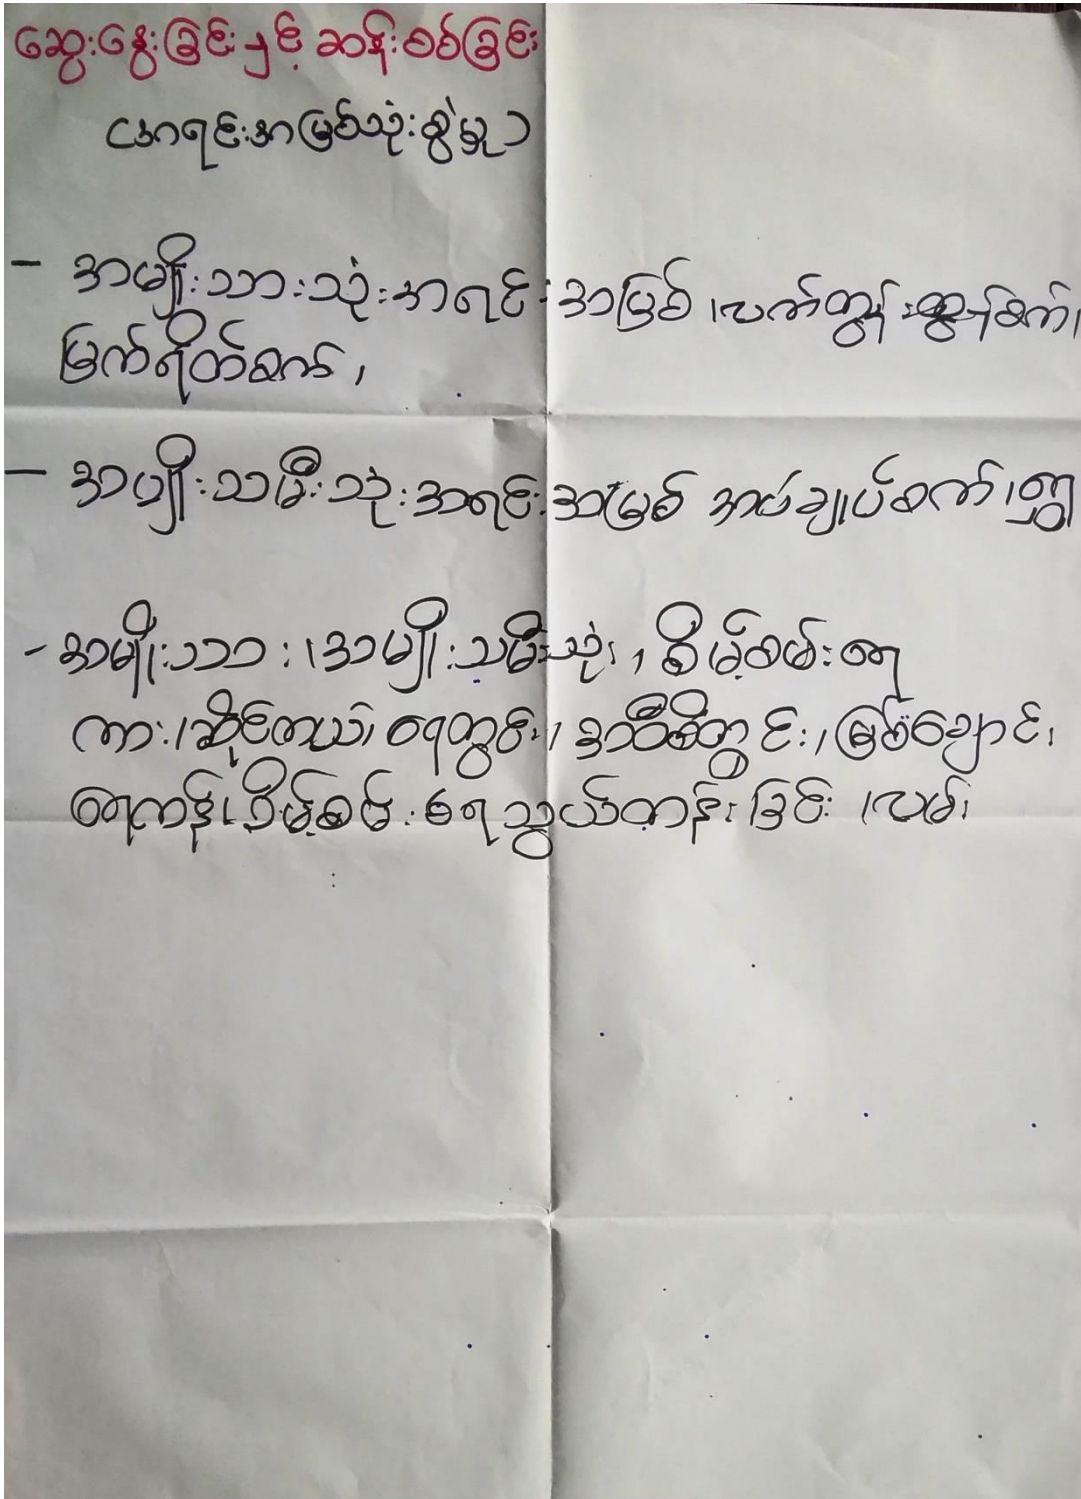 ဆွေးနွေးခြင်းနှင့်ဆန်းစစ်ခြင်း
(အရင်းအမြစ်သုံးစွဲမှု)
- အမျိုးသားသုံးအရင်းအမြစ်၊လက်တွန်း
မြက်ရိတ်စက်၊
- အမျိုးသမီးသုံးအရင်းအမြစ် အပ်ချုပ်စက်၊
- အမျိုးသား၊အမျိုးသမီးသုံး၊ စိမ့်စမ်းရေ
ကား၊ဆိုင်ကယ်၊ရေတွင်း၊အဝီစိတွင်း၊မြစ်ချောင်း
ရေကန်၊စိမ့်စမ်းရေသွယ်တန်းခြင်း၊လမ်း